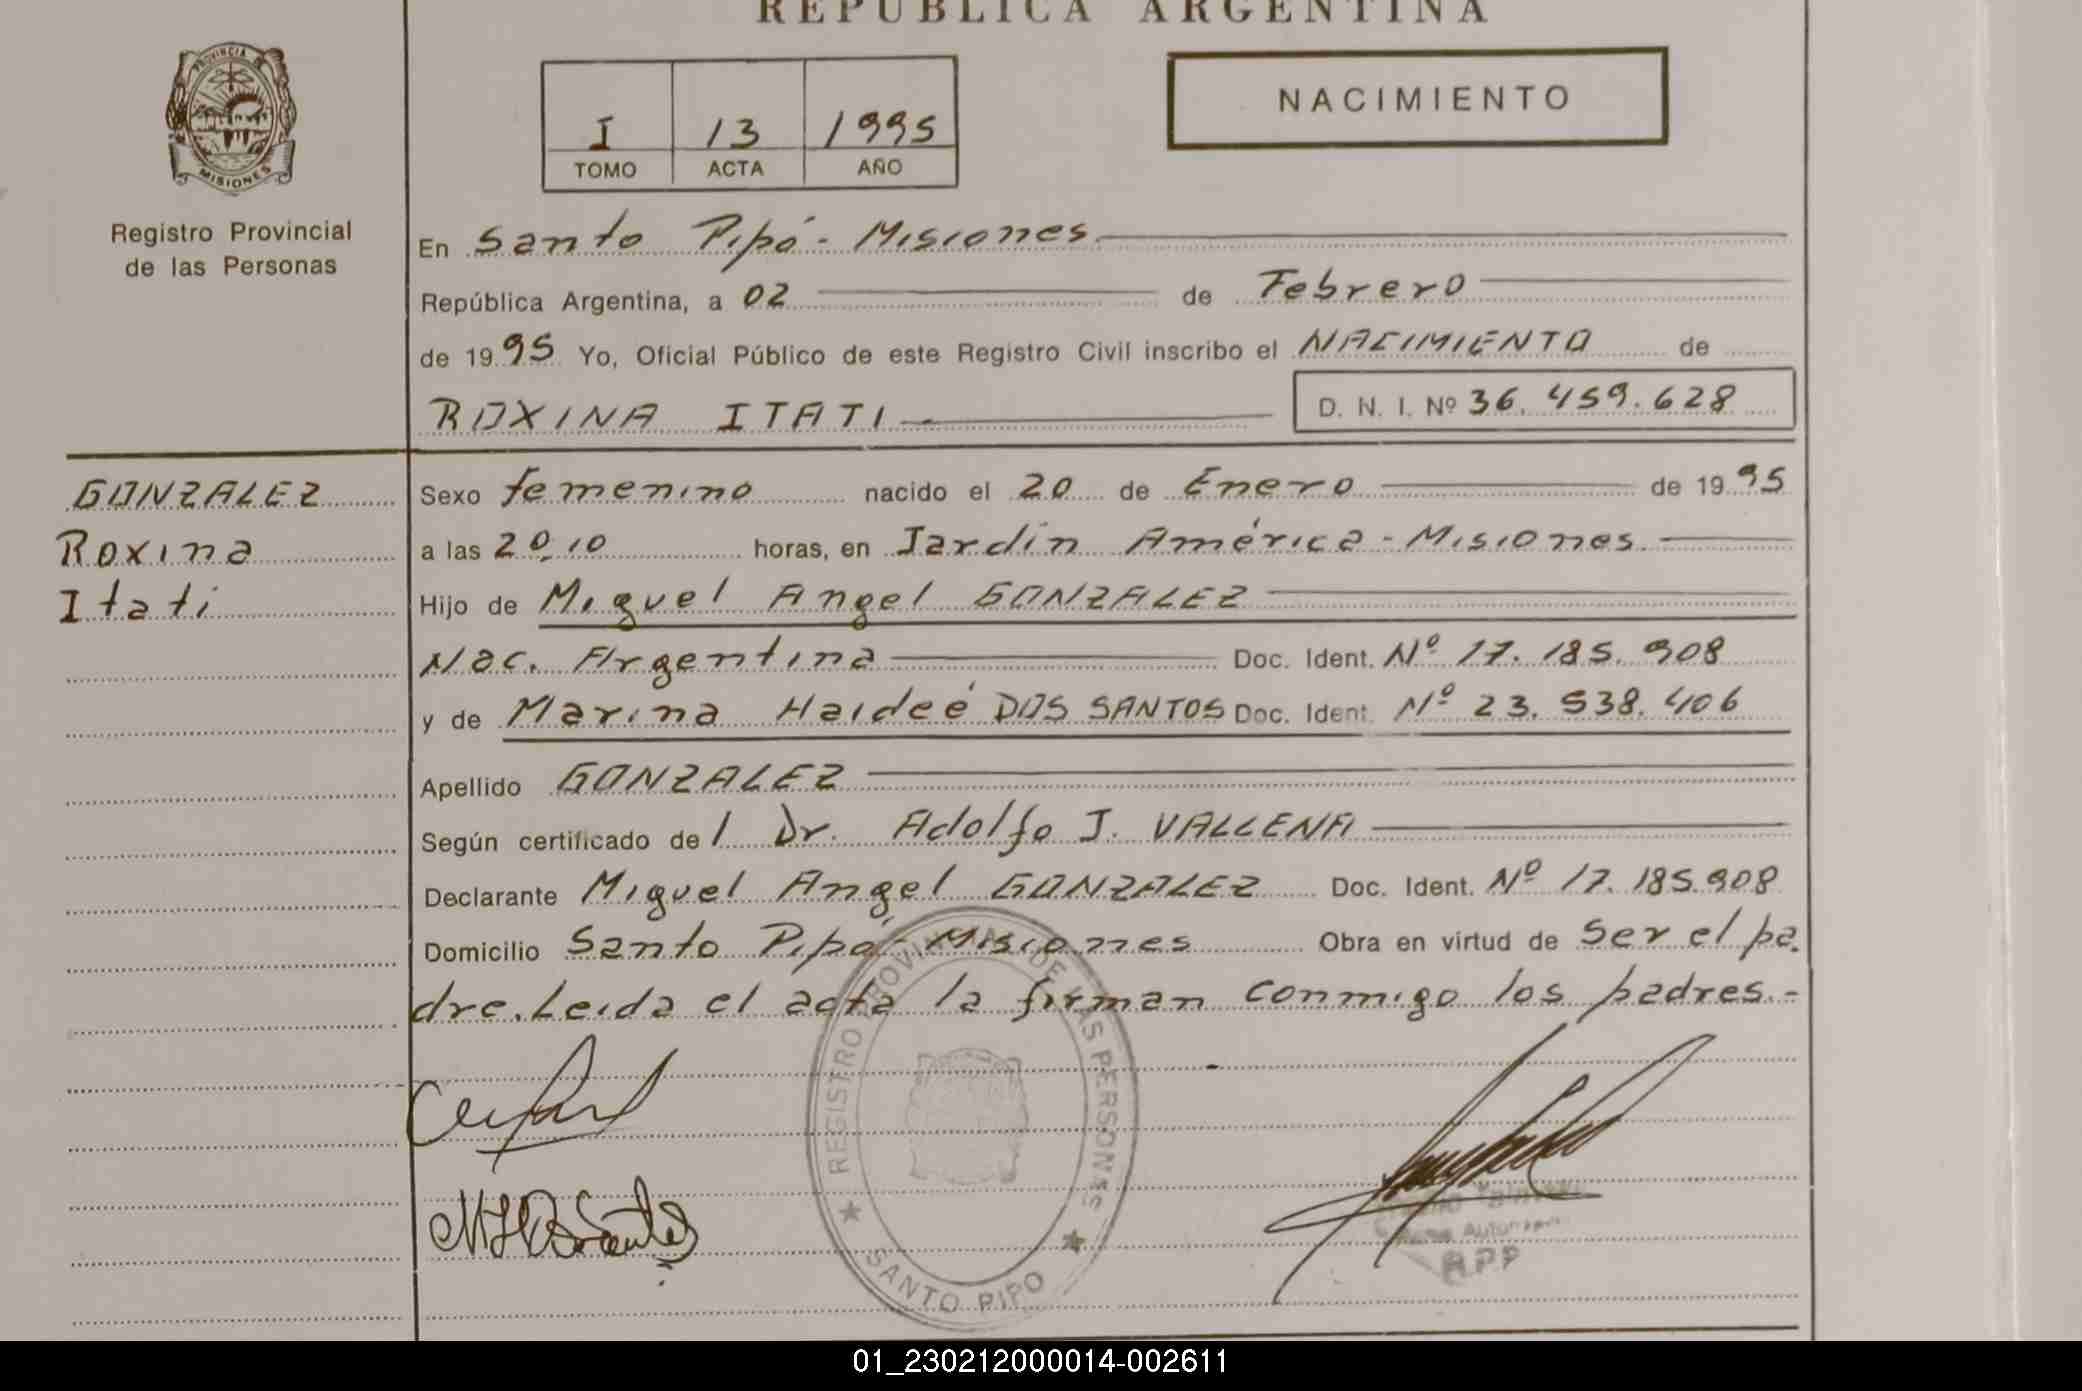 REPUBLICA ARGENTINA
PROVINCIA DE
MISIONES
Registro Provincial
de las Personas
I 13 1995
TOMO ACTA AÑO
NACIMIENTO
En Santo Pipó - Misiones
República Argentina, a 02 de Febrero
de 1995 Yo, Oficial Público de este Registro Civil inscribo el NACIMIENTO de
ROXINA ITATI D. N. I. Nº 36.459.628
GONZALEZ
Roxina
Itati
Sexo femenino nacido el 20 de Enero de 1995
a las 20,10 horas, en Jardín América - Misiones.
Hijo de Miguel Angel GONZALEZ
Nac. Argentina Doc. Ident. Nº 17.185.908
y de Marina Haideé DOS SANTOS Doc. Ident. Nº 23.538.406
Apellido GONZALEZ
Según certificado del Dr. Adolfo J. VALLENA
Declarante Miguel Angel GONZALEZ Doc. Ident. Nº 17.185.908
Domicilio Santo Pipó - Misiones Obra en virtud de Ser el pa
dre. Leida el acta la firman conmigo los padres.-
REGISTRO PROVINCIAL DE LAS PERSONAS
SANTO PIPO
RPP
01_230212000014-002611